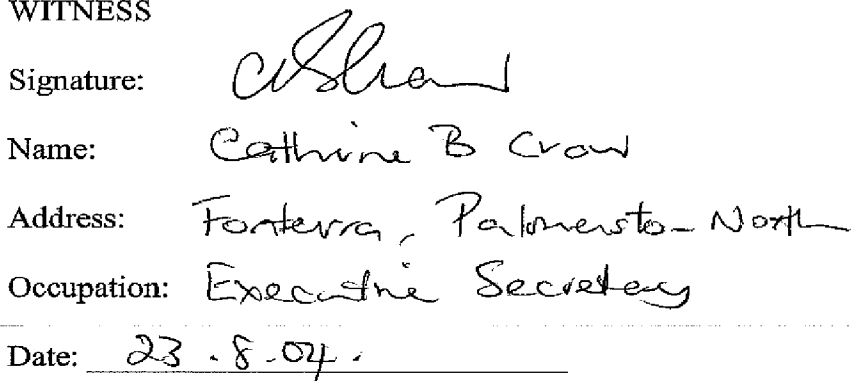 WITNESS
Signature:
Name: Cathrine B Crow
Address: Fonterra, Palmerston North
Occupation: Executive Secretary
Date: 23.8.04.